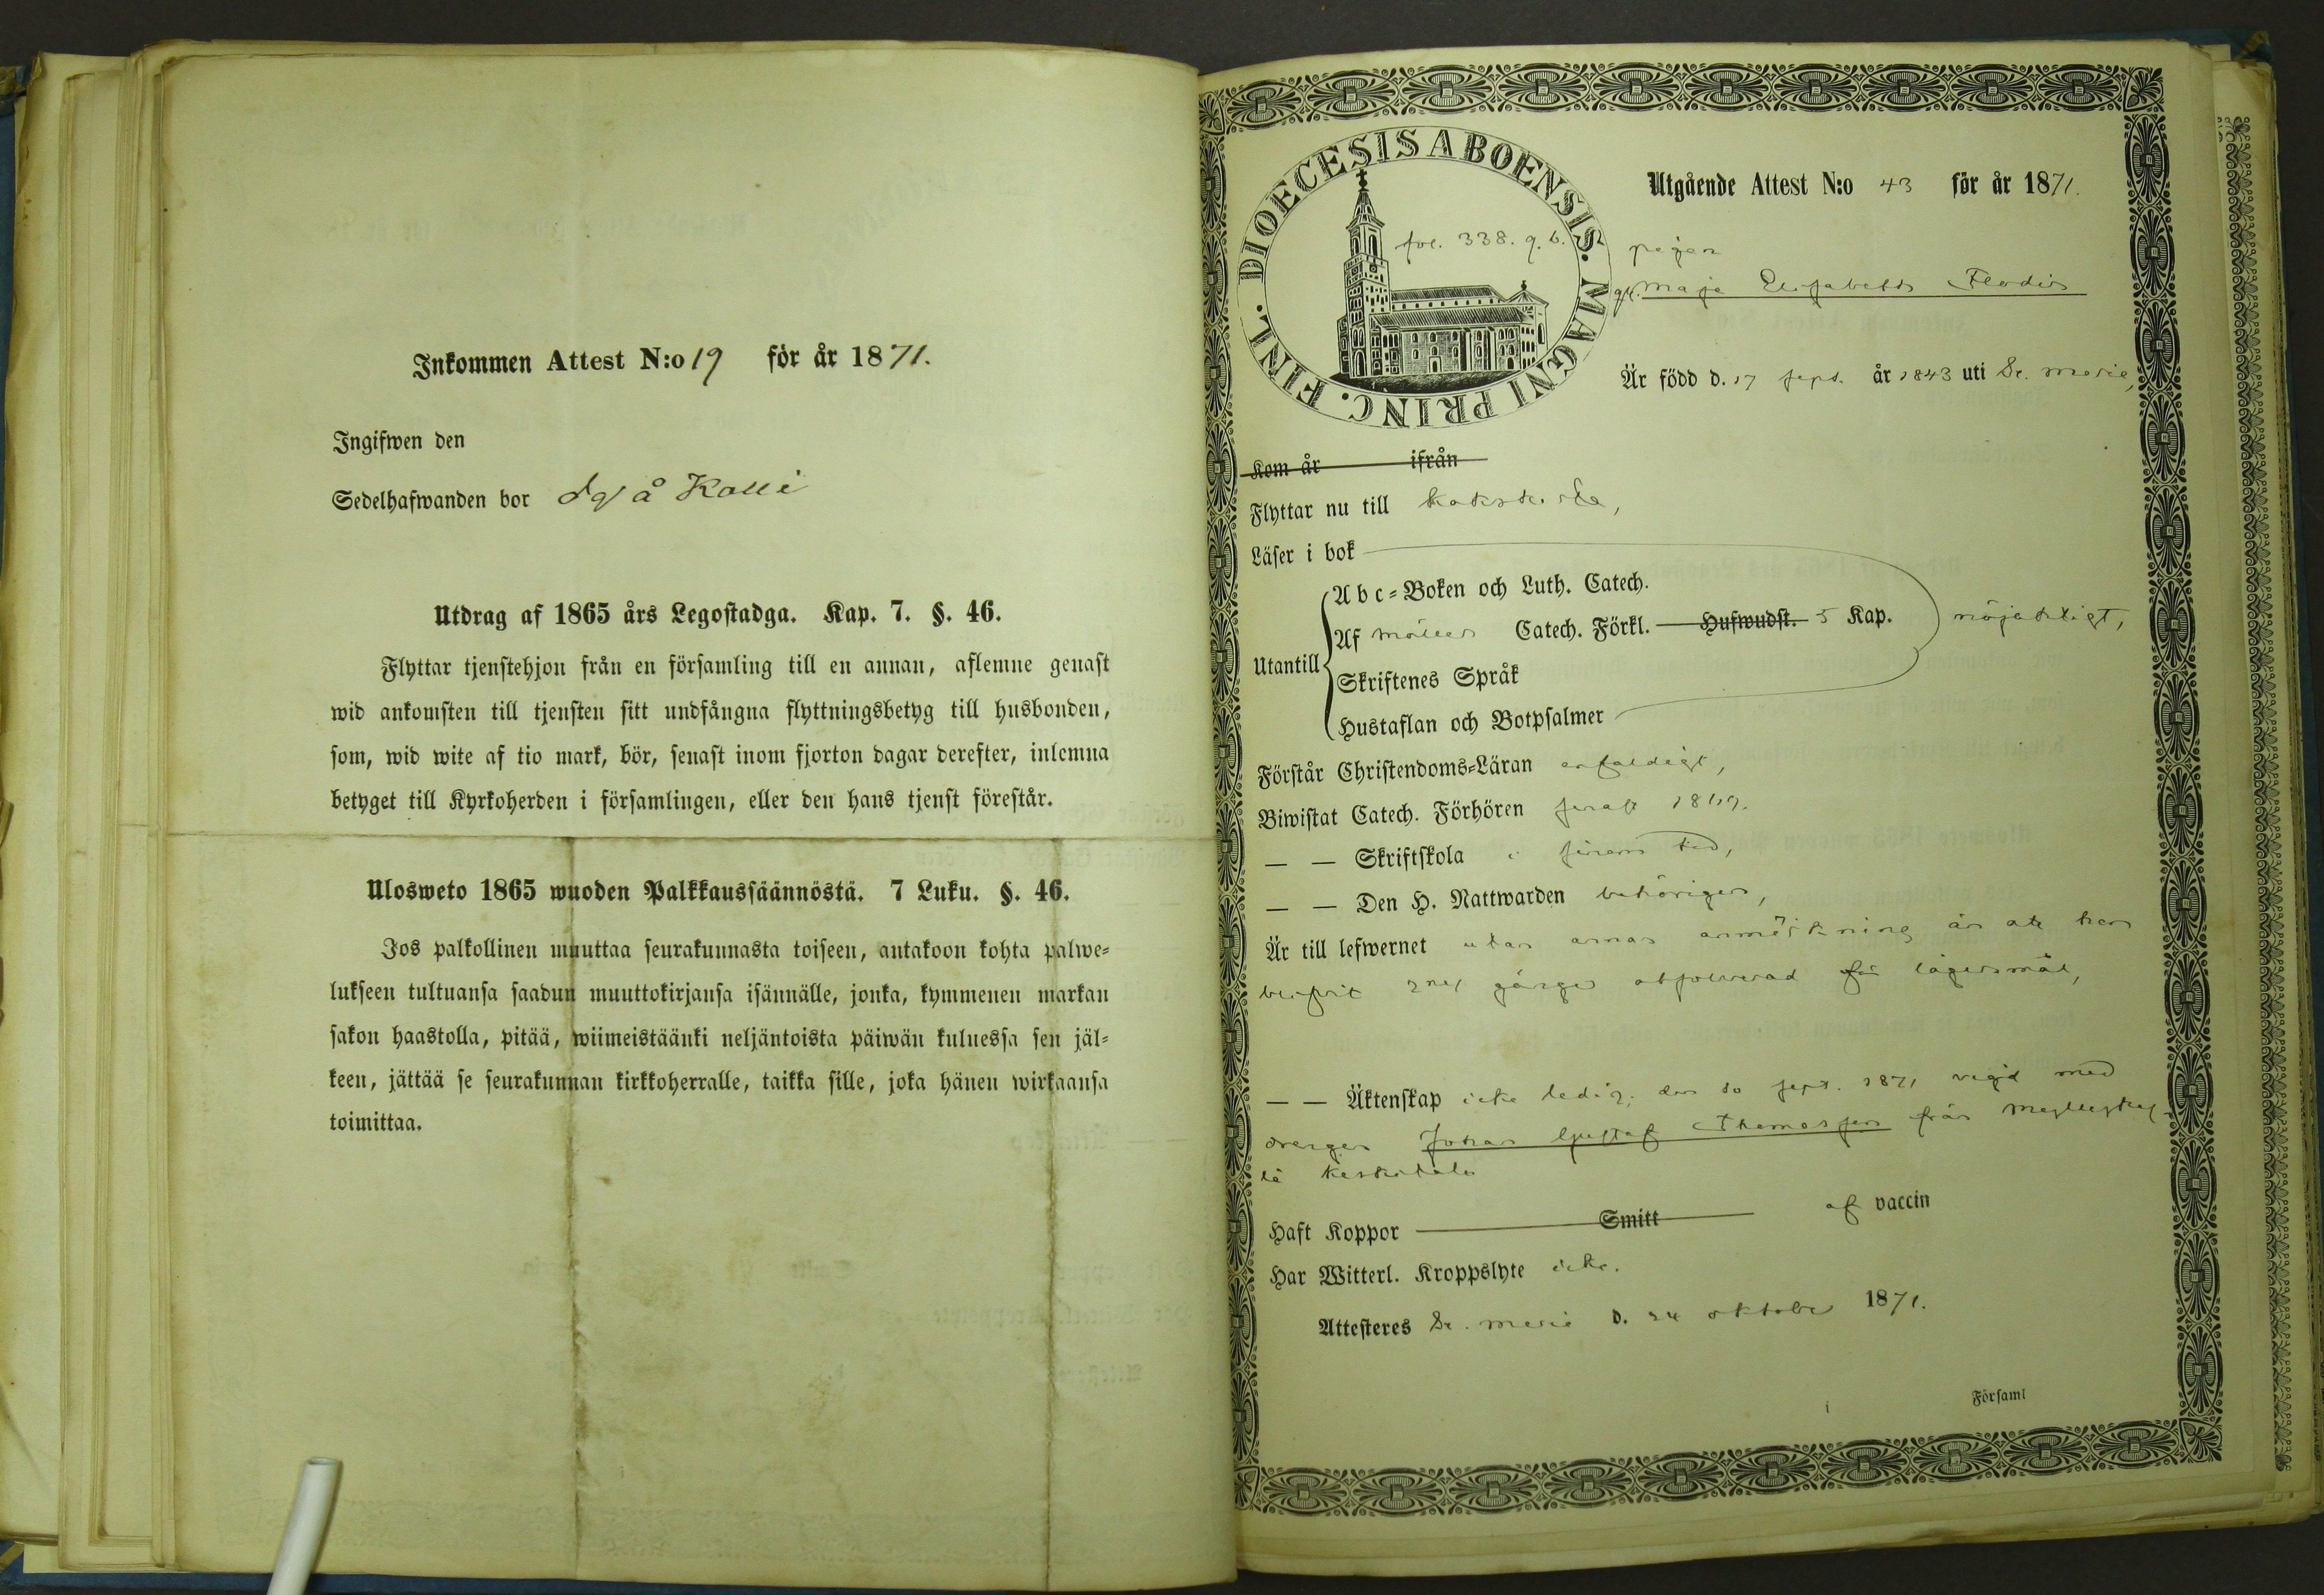 Inkommen Attest N:o 19 för år 1871.
Ingifwen den
Sedelhafwanden bor dgl å Kalli
Utdrag af 1865 års Legostadga. Kap. 7. §. 46.
Flyttar tjenstehjon från en församling till en annan, aflemne genast
wid ankomsten till tjensten sitt undfångna flyttningsbetyg till husbonden,
som, wid wite af tio mark, bör, senast inom fjorton dagar derefter, inlemna
betyget till Kyrkoherden i församlingen, eller den hans tjenst förestår.
Ulosweto 1865 wuoden Palkkaussäännöstä. 7 Luku. §. 46.
Jos palkollinen muuttaa seurakunnasta toiseen, antakoon kohta palwe-
lukseen tultuansa saadun muuttokirjansa isännälle, jonka, kymmenen markan
sakon haastolla, pitää, wiimeistäänki neljäntoista päiwän kuluessa sen jäl-
keen, jättää se seurakunnan kirkkoherralle, taikka sille, joka hänen wirkaansa
toimittaa.
DIOECESIS ABOENSIS. MAGNI PRINC. FINL.
fol. 338. g. b.
Utgående Attest N:o 43 för år 1871.
pigan
Maja Elisabeth Flodin
Är född d. 17 sept. år 1843 uti St. Marie,
Kom år ifrån
Flyttar nu till
Läser i bok
Abc-Boken och Luth. Catech.
Utantill Af Möllers Catech. Förkl. Hufwudst. 5 Kap. nöjaktligt,
Skriftenes Språk
Hustaflan och Botpsalmer
Förstår Christendoms-Läran enfaldigt,
Biwistat Catech. Förhören senast 1869.
— — Skriftskola i sinom tid,
— — Den H. Nattwarden behörigen,
Är till lefwernet utan annan anmärkning än att hon
blifvit 2ne gånger absolverad för lägersmål,
— — Äktenskap icke ledig; den 10 sept. 1871 vigd med
drengen Johan Gustaf Thomasson från
Haft Koppor Smitt af vaccin
Har Witterl. Kroppslyte icke.
Attesteres St. Marie d. 24 oktober 1871.
i Församl